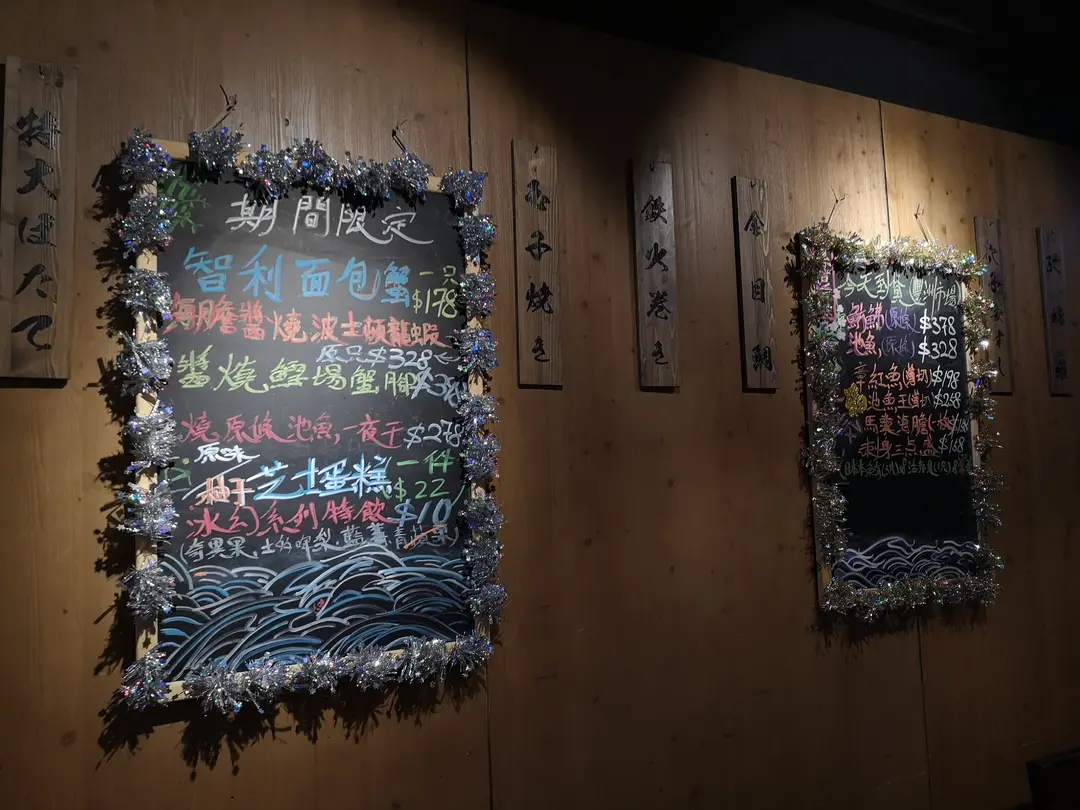 特大ほたて
期間限定
智利面包蟹一只
$178
海膽醬燒波士頓龍蝦
原只$328
醬燒鱈場蟹腳$38
燒原條池魚,一夜干$278
原味
柚子芝士蛋糕一件
$22
冰幻系列特飲$10
(奇異果,士多啤梨,藍莓,青苹果)
玉子焼き
鉄火巻き
金目鯛
今天到食豊洲市場
(原條)$378
池魚(原條)$328
紅魚(薄切)$198
池魚王(薄切)$268
馬糞海膽(一枚)
三点盛$168